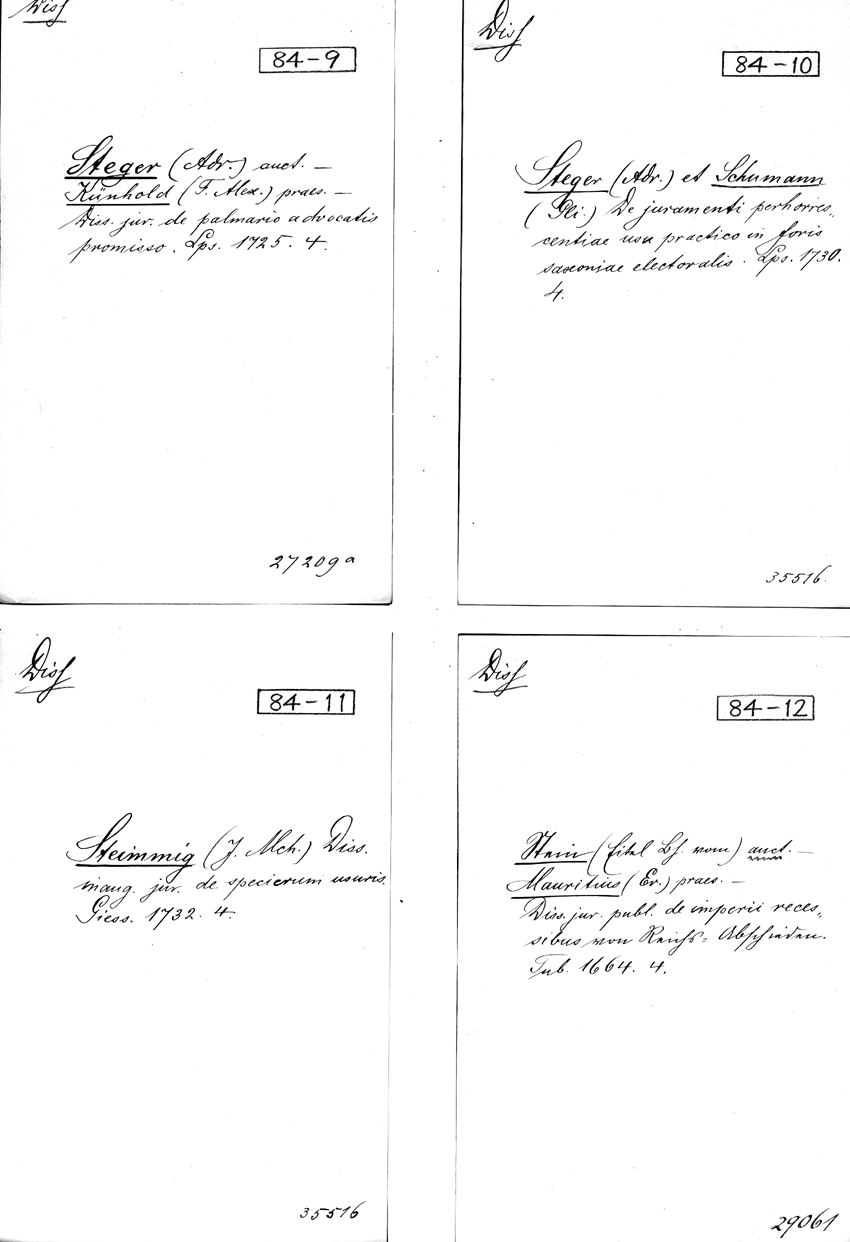 Diss
84-9
Steger (Adr.) auct. —
Künhold (F. Alex.) praes. —
Diss. jur. de palmario advocatis
promisso. Lps. 1725. 4.
27209a
Diss
84-10
Steger (Adr.) et Schumann
(Gli.) De juramenti perhorres„
centiae usu practico in foris
saxoniae electoralis. Lps. 1730.
4.
35516.
Diss
84-11
Steimmig (J. Mch.) Diss.
inaug. jur. de specierum usuris.
Giess. 1732. 4.
35516
Diss
84-12
Stein (Eitel Bh. vom) auct. —
Mauritius (Er.) praes. —
Diss. jur. publ. de imperii reces„
sibus von Reichs=Abschieden.
Tub. 1664. 4.
29061